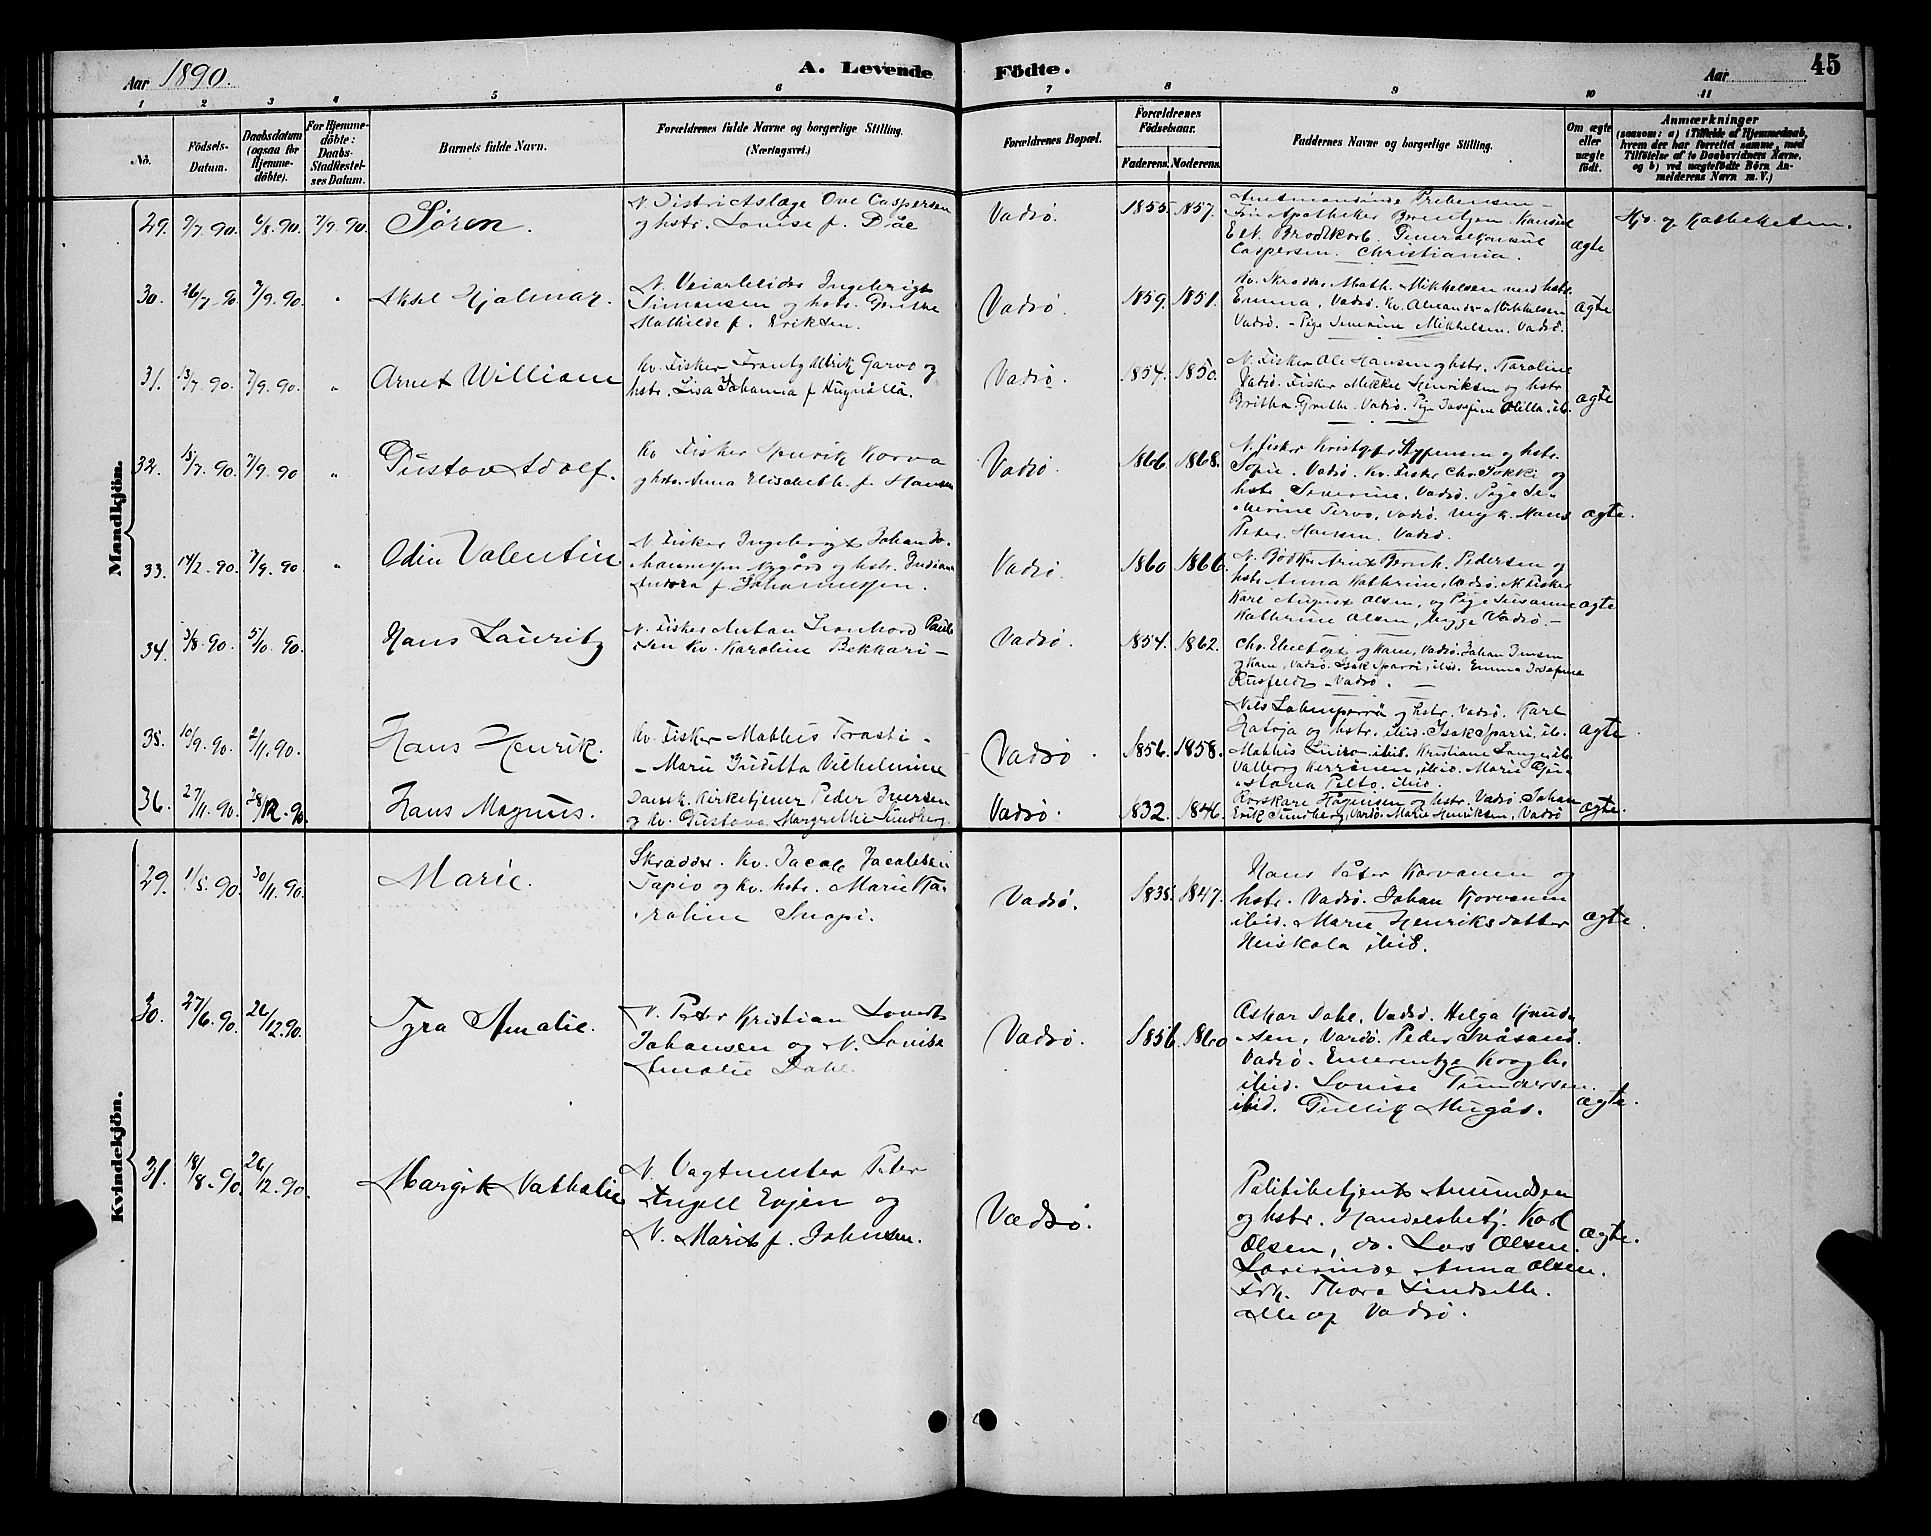 Aar 1890.
A. Levende
Födte.
Aar
45
1 2 3 4 5 6 7 8 9 10 11
No.
Födsels-
Datum.
Daabsdatum
(ogsaa for
Hjemme-
döbte).
For Hjemme-
döbte:
Daabs-
Stadfæstel-
ses Datum.
Barnets fulde Navn.
Forældrenes fulde Navne og borgerlige Stilling.
(Næringsvei.)
Forældrenes Bopæl.
Forældrenes
Födselsaar.
Faderens. Moderens.
Faddernes Navne og borgerlige Stilling.
Om ægte
eller
uægte
födt.
Anmærkninger
(saasom: a) i Tilfælde af Hjemmedaab,
hvem der har forrettet samme, med
Tilföielse af to Daabsvidners Navne,
og b) ved uægtefödte Börn An-
melderens Navn m. V.)
Mandkjön.
29. 9/7. 90. 6/8. 90. 7/9. 90. Sören.
N. Districtslæge Ove Caspersen
og hstr. Louise f. Däe
Vadsö. 1855. 1857.
Amtmandinde Prebensen -
Fru Apotheker
E. N. Brodtkorb. Generalkonsul
Caspersen. Christiania.
ægte
30. 26/7. 90 7/9. 90. " Aksel Hjalmar.
N. Veiarbeider Ingebrigt
Simonsen og hstr.
Mathilde f. Eriksen.
Vadsö. 1859. 1851.
Kv. Skrædder Math. Mikkelsen med hstr.
Emma, Vadsö. Kv. Alexander Mikkelsen
Vadsö. - Pige Severine Mikkelsen. Vadsö.
ægte
31. 13/7. 90. 7/9. 90. " Arnt William
Kv. Fisker Frantz Ulrik Garvo og
hstr. Lisa Johanna f.
Vadsö. 1854. 1850.
N. Fisker Ole Hansen og hstr. Karoline
Vadsö. Fisker Mikkel Henriksen og hstr
Britha Grethe. Vadsö. Pige Josefine
ægte
32. 13/7. 90. 7/9. 90 " Gustav Adolf.
Kv. Fisker Henrik Korva
og hstr. Anna Elisabeth f. Hansen
Vadsö. 1866 1868.
N. Fisker
Sofie. Vadsö. Kv. Fisker Chr. Jokki og
hstr. Severine. Vadsö. Pige Se-
verine Servo, Vadsö. Ungk. Hans
Peter Hansen. Vadsö.
ægte.
33. 14/2. 90. 7/9. 90 " Odin Valentin
N. Fisker Ingebrigt Johan Jo-
hannessen Nygård og hstr. Indiana
Aurora f. Johannessen.
Vadsö. 1860 1866.
N. Bödker Arnt Bernh. Pedersen og
hstr. Anna Kathrine, Vadsö. N. Fisker
Karl August Olsen, og Pige Susanne
Kathrine Olsen, begge Vadsö. -
ægte
34. 3/8. 90. 5/10. 90. Hans Lauritz
N. Fisker Anton Leonhard Paul-
sen Kv. Karoline Bekkari -
Vadsö. 1854. 1862.
Chr. og Kone, Vadsö. Johan Jensen
og Kone, Vadsö. Isak Sparri, ibid. Emma Josefine
Vadsö. -
35. 10/9. 90. 2/11. 90. Hans Henrik.
Kv. Fisker Mathis Trasti -
- Marie Juditta Vilhelmine
Vadsö. 1856. 1858.
Nils og hstr. Vadsö. Karl
og hstr. ibid. Isak Sparri, ib.
Mathis ibid. Kristiane Lang ib.
Valborg Kerränen, ibid. Marie
Pelto, ibid.
ægte.
36. 27/11. 90. 28/12. 90. Hans Magnus.
Dansk. Kirketjener Peder Iversen
og Kv. Gustava Margrethe Sundberg.
Vadsö. 1832. 1846.
Hågensen og hstr. Vadsö Johan
Erik Sundberg, Vardö. Marie Henriksen, Vadsö
ægte.
Kvindekjön.
29. 1/5. 90. 30/11. 90. Marie.
Skrædder. Kv. Jacob Jacobsen
Tapio og Kv. hstr. Marie Ka-
roline Snapi.
Vadsö. 1838. 1847.
Hans Peter Korvanen og
hstr. Vadsö. Johan Korvanen
ibid. Marie Henriksdatter
Heiskola ibid.
ægte.
30. 27/6. 90. 26/12. 90. Tyra Amalie.
N. Peter Kristian
Johansen og N. Lovise
Amalie Dahl.
Vadsö. 1856. 1860
Oskar Dahl, Vadsö. Helga Knud-
sen, Vardö. Peder Svåsand.
Vadsö. Emerentze Krogh.
ibid. Louise Gundersen.
ibid. Gullik Mugås.
ægte.
31. 18/8. 90. 26/12. 90. Margit Nathalie
N. Vagtmester Peter
Angell Evjen og
N. Marit f. Johnsen.
Vadsö.
Politibetjent Amundsen
og hstr. Handelsbetj. Karl
Olsen, do. Lars Olsen.
Lærerinde Anna Olsen.
Frk. Thora Lindseth.
alle af Vadsö.
ægte.